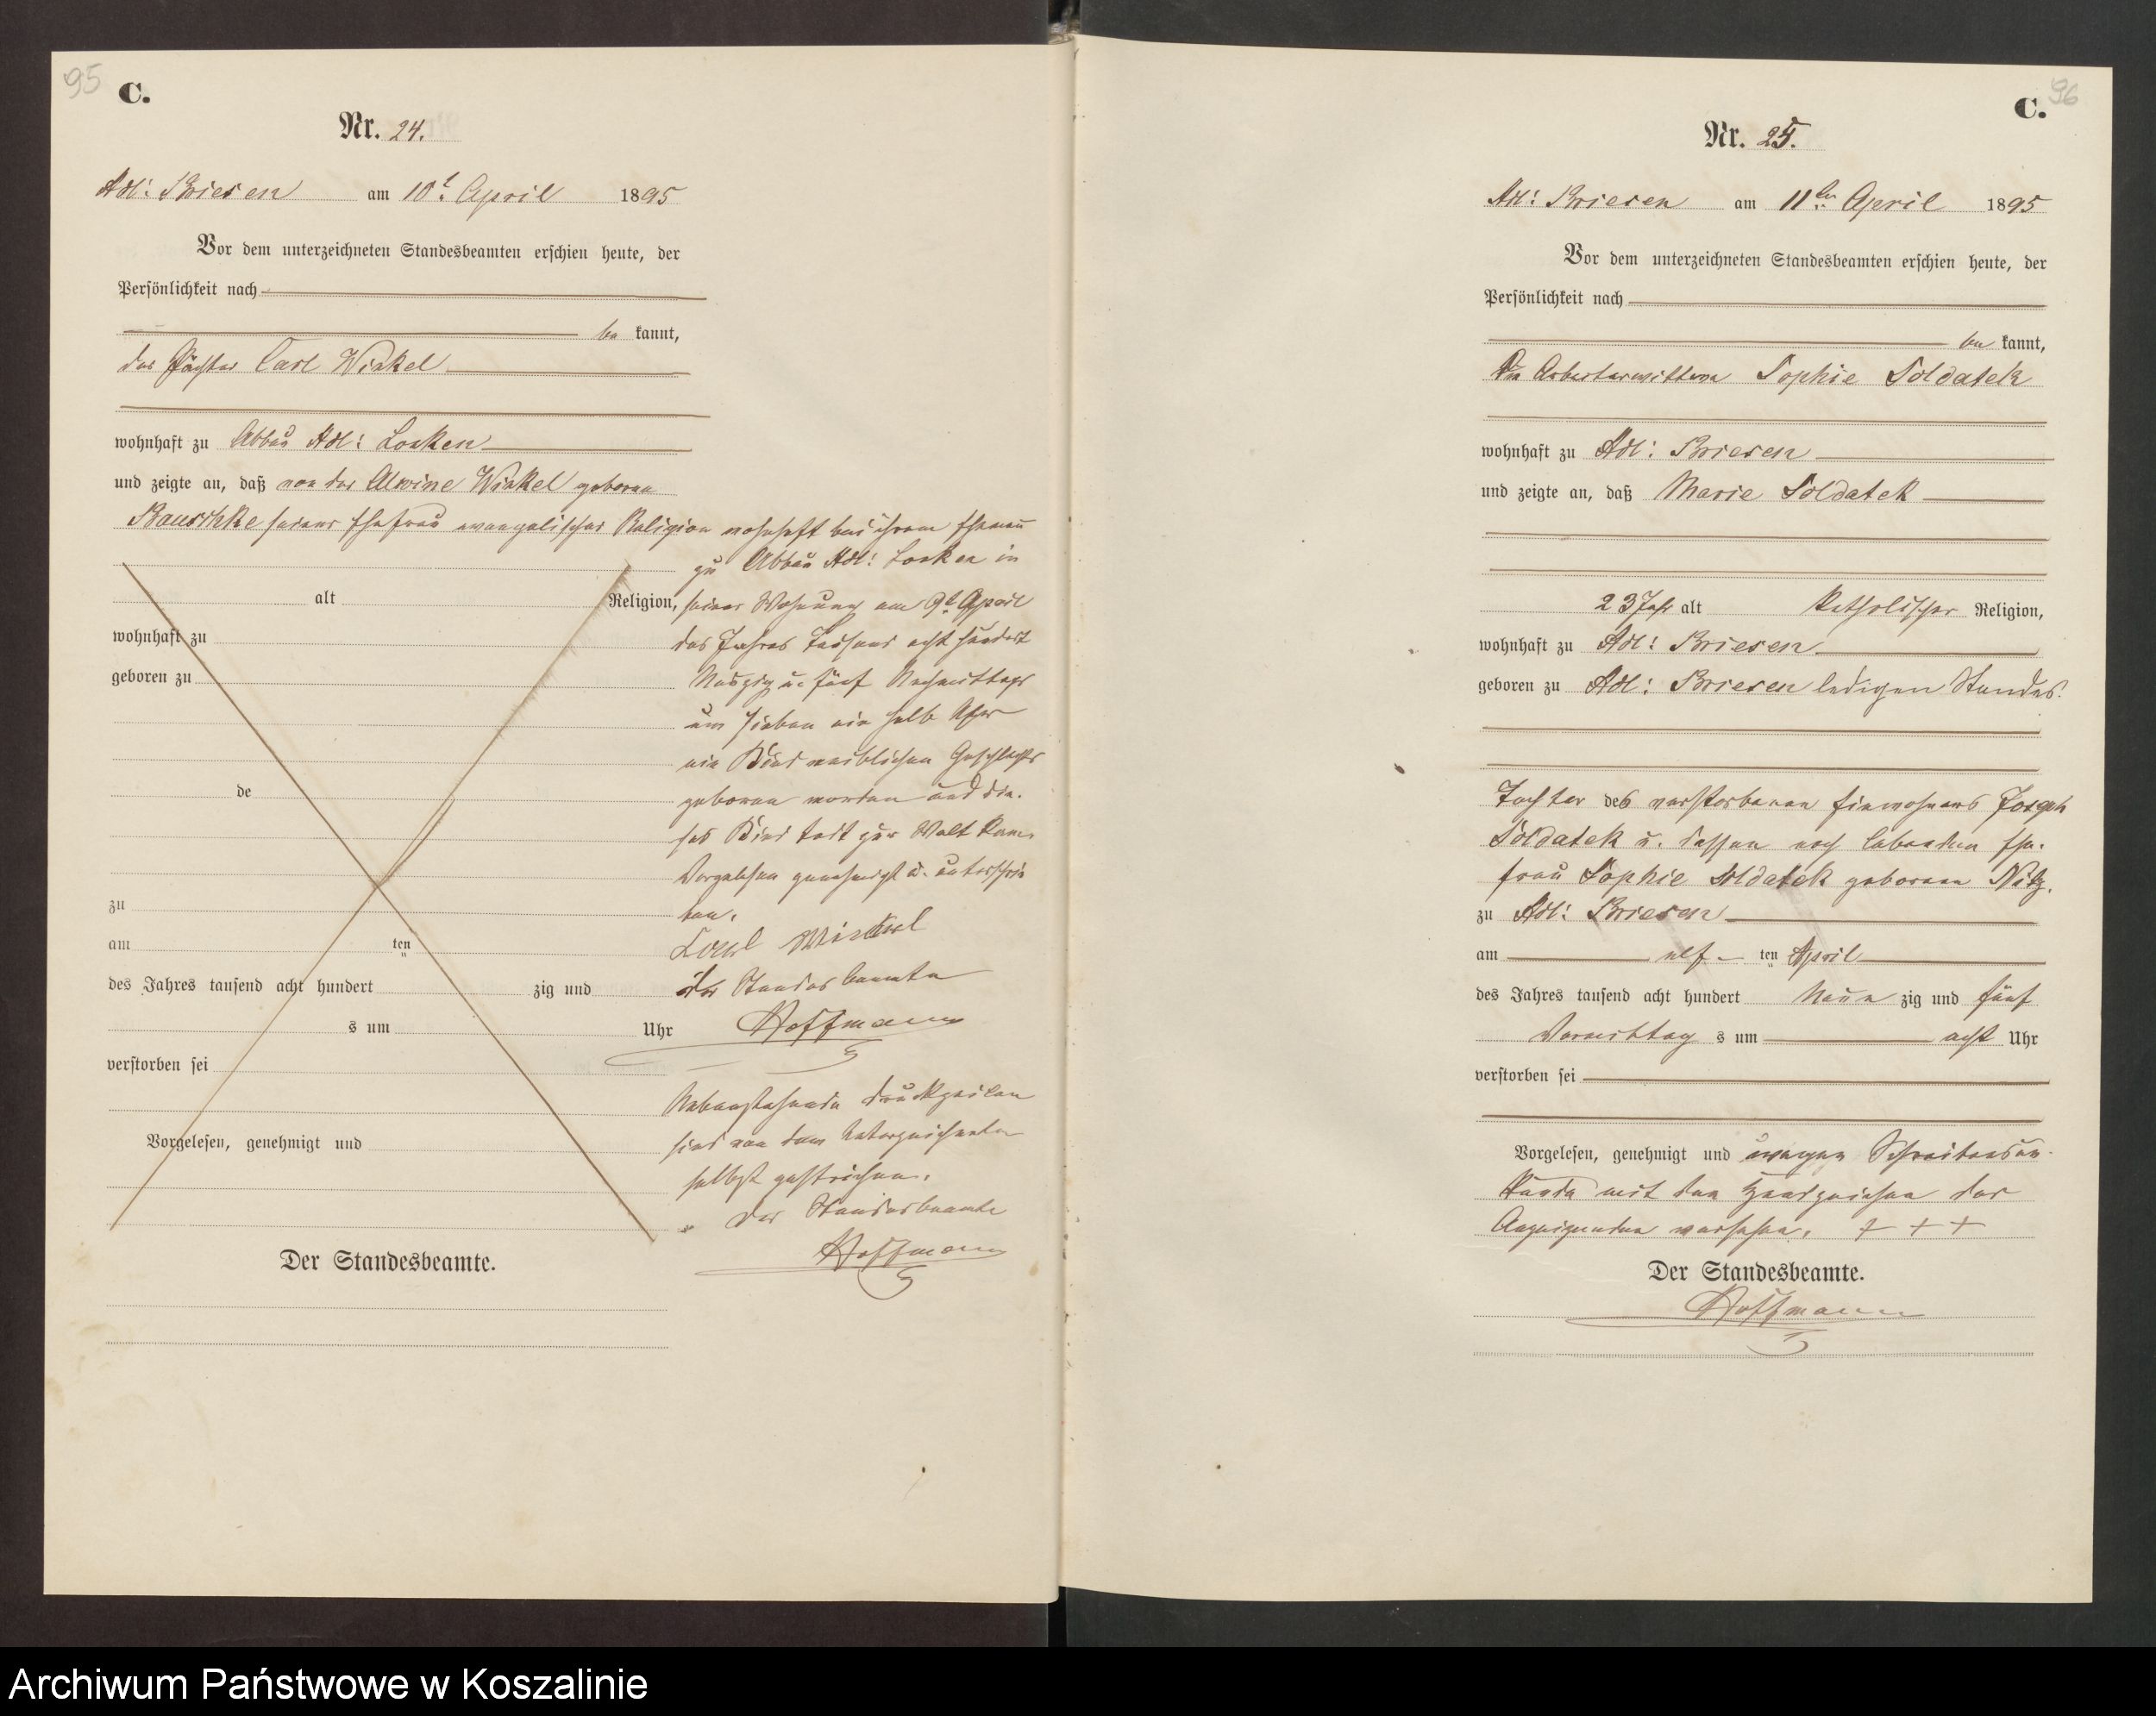 95
C.
Nr. 24.
Adl: Briesen am 10t. April 1895
Vor dem unterzeichneten Standesbeamten erschien heute, der
Persönlichkeit nach
be kannt,
der Pächter Carl Winkel
wohnhaft zu Abbau Adl: Lonken
und zeigte an, daß von der Alwine Winkel geborene
Bauschke seiner Ehefrau evangelischer Religion wohnhaft bei ihrem Ehemann
zu Abbau Adl: Lonken in
alt Religion, seiner Wohnung am 9t. April
wohnhaft zu des Jahres Tausend acht hundert
geboren zu Neunzig u. fünf Nachmittags
um sieben ein halb Uhr
ein Kind weiblichen Geschlechts
de geboren worden und die-
ses Kind todt zur Welt kam.
Vorgelesen genehmigt u. unterschrie
zu ben.
am ten Carl Winkel
des Jahres tausend acht hundert zig und der Standesbeamte
s um Uhr Hoffmann
verstorben sei
Nebenstehende Druckzeilen
Vorgelesen, genehmigt und sind von dem Unterzeichneten
selbst gestrichen.
Der Standesbeamte
Der Standesbeamte. Hoffmann
96
C.
Nr. 25.
Adl: Briesen am 11ten April 1895
Vor dem unterzeichneten Standesbeamten erschien heute, der
Persönlichkeit nach
be kannt,
Die Arbeiterwittwe Sophie Soldatek
wohnhaft zu Adl: Briesen
und zeigte an, daß Marie Soldatek
23 Jahr alt katholischer Religion,
wohnhaft zu Adl: Briesen
geboren zu Adl: Briesen ledigen Standes.
Tochter des verstorbenen Einwohners Joseph
Soldatek u. dessen noch lebenden Ehe-
frau Sophie Soldatek geborene Nitz.
zu Adl: Briesen
am elf- ten April
des Jahres tausend acht hundert Neun zig und fünf
Vormittag s um acht Uhr
verstorben sei
Vorgelesen, genehmigt und wegen Schreibensun-
kunde mit den Handzeichen der
Anzeigenden versehen. + + +
Der Standesbeamte.
Hoffmann
Archiwum Państwowe w Koszalinie